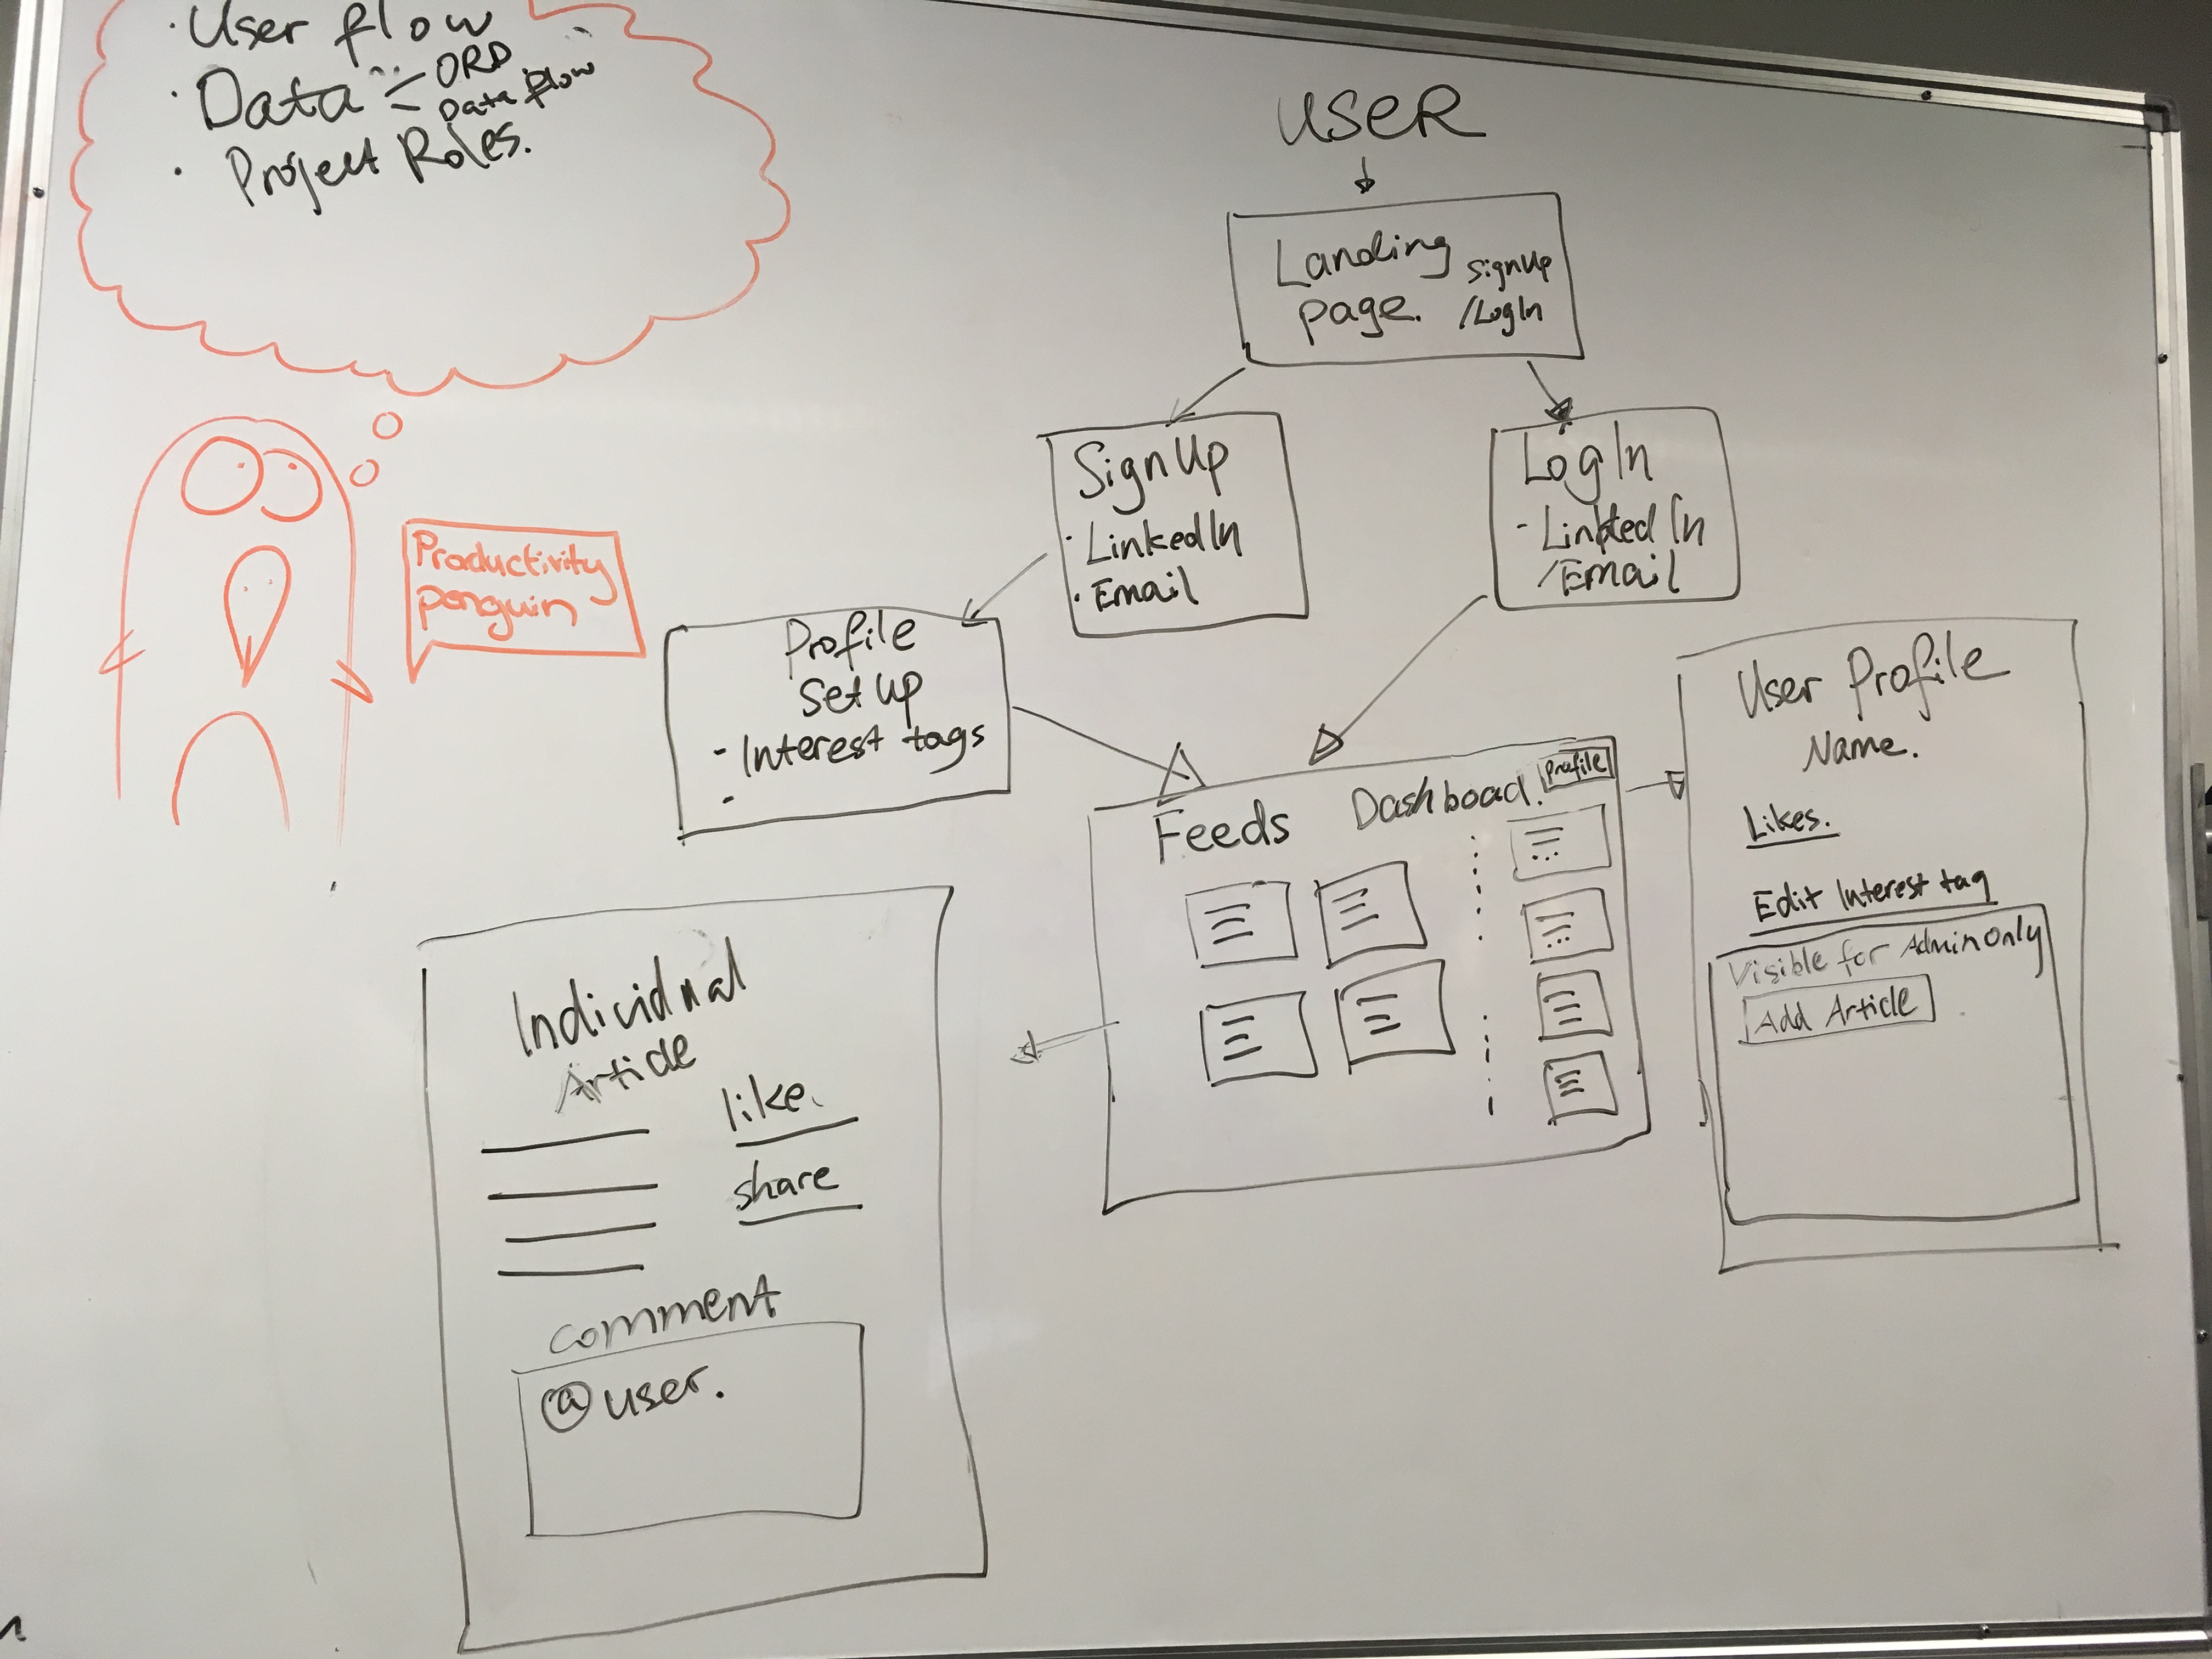 · User flow
· Data
ORD
Data flow
· Project Roles.
Productivity
penguin
USER
Landing
page.
SignUp
/LogIn
SignUp
· LinkedIn
· Email
LogIn
- LinktedIn
/Email
Profile
Set up
- Interest tags
-
Feeds
Dashboad.
Profile
User Profile
Name.
Likes.
Edit Interest tag
Visible for Admin Only
Add Article
Individual
Article
like.
share
comment
@user.